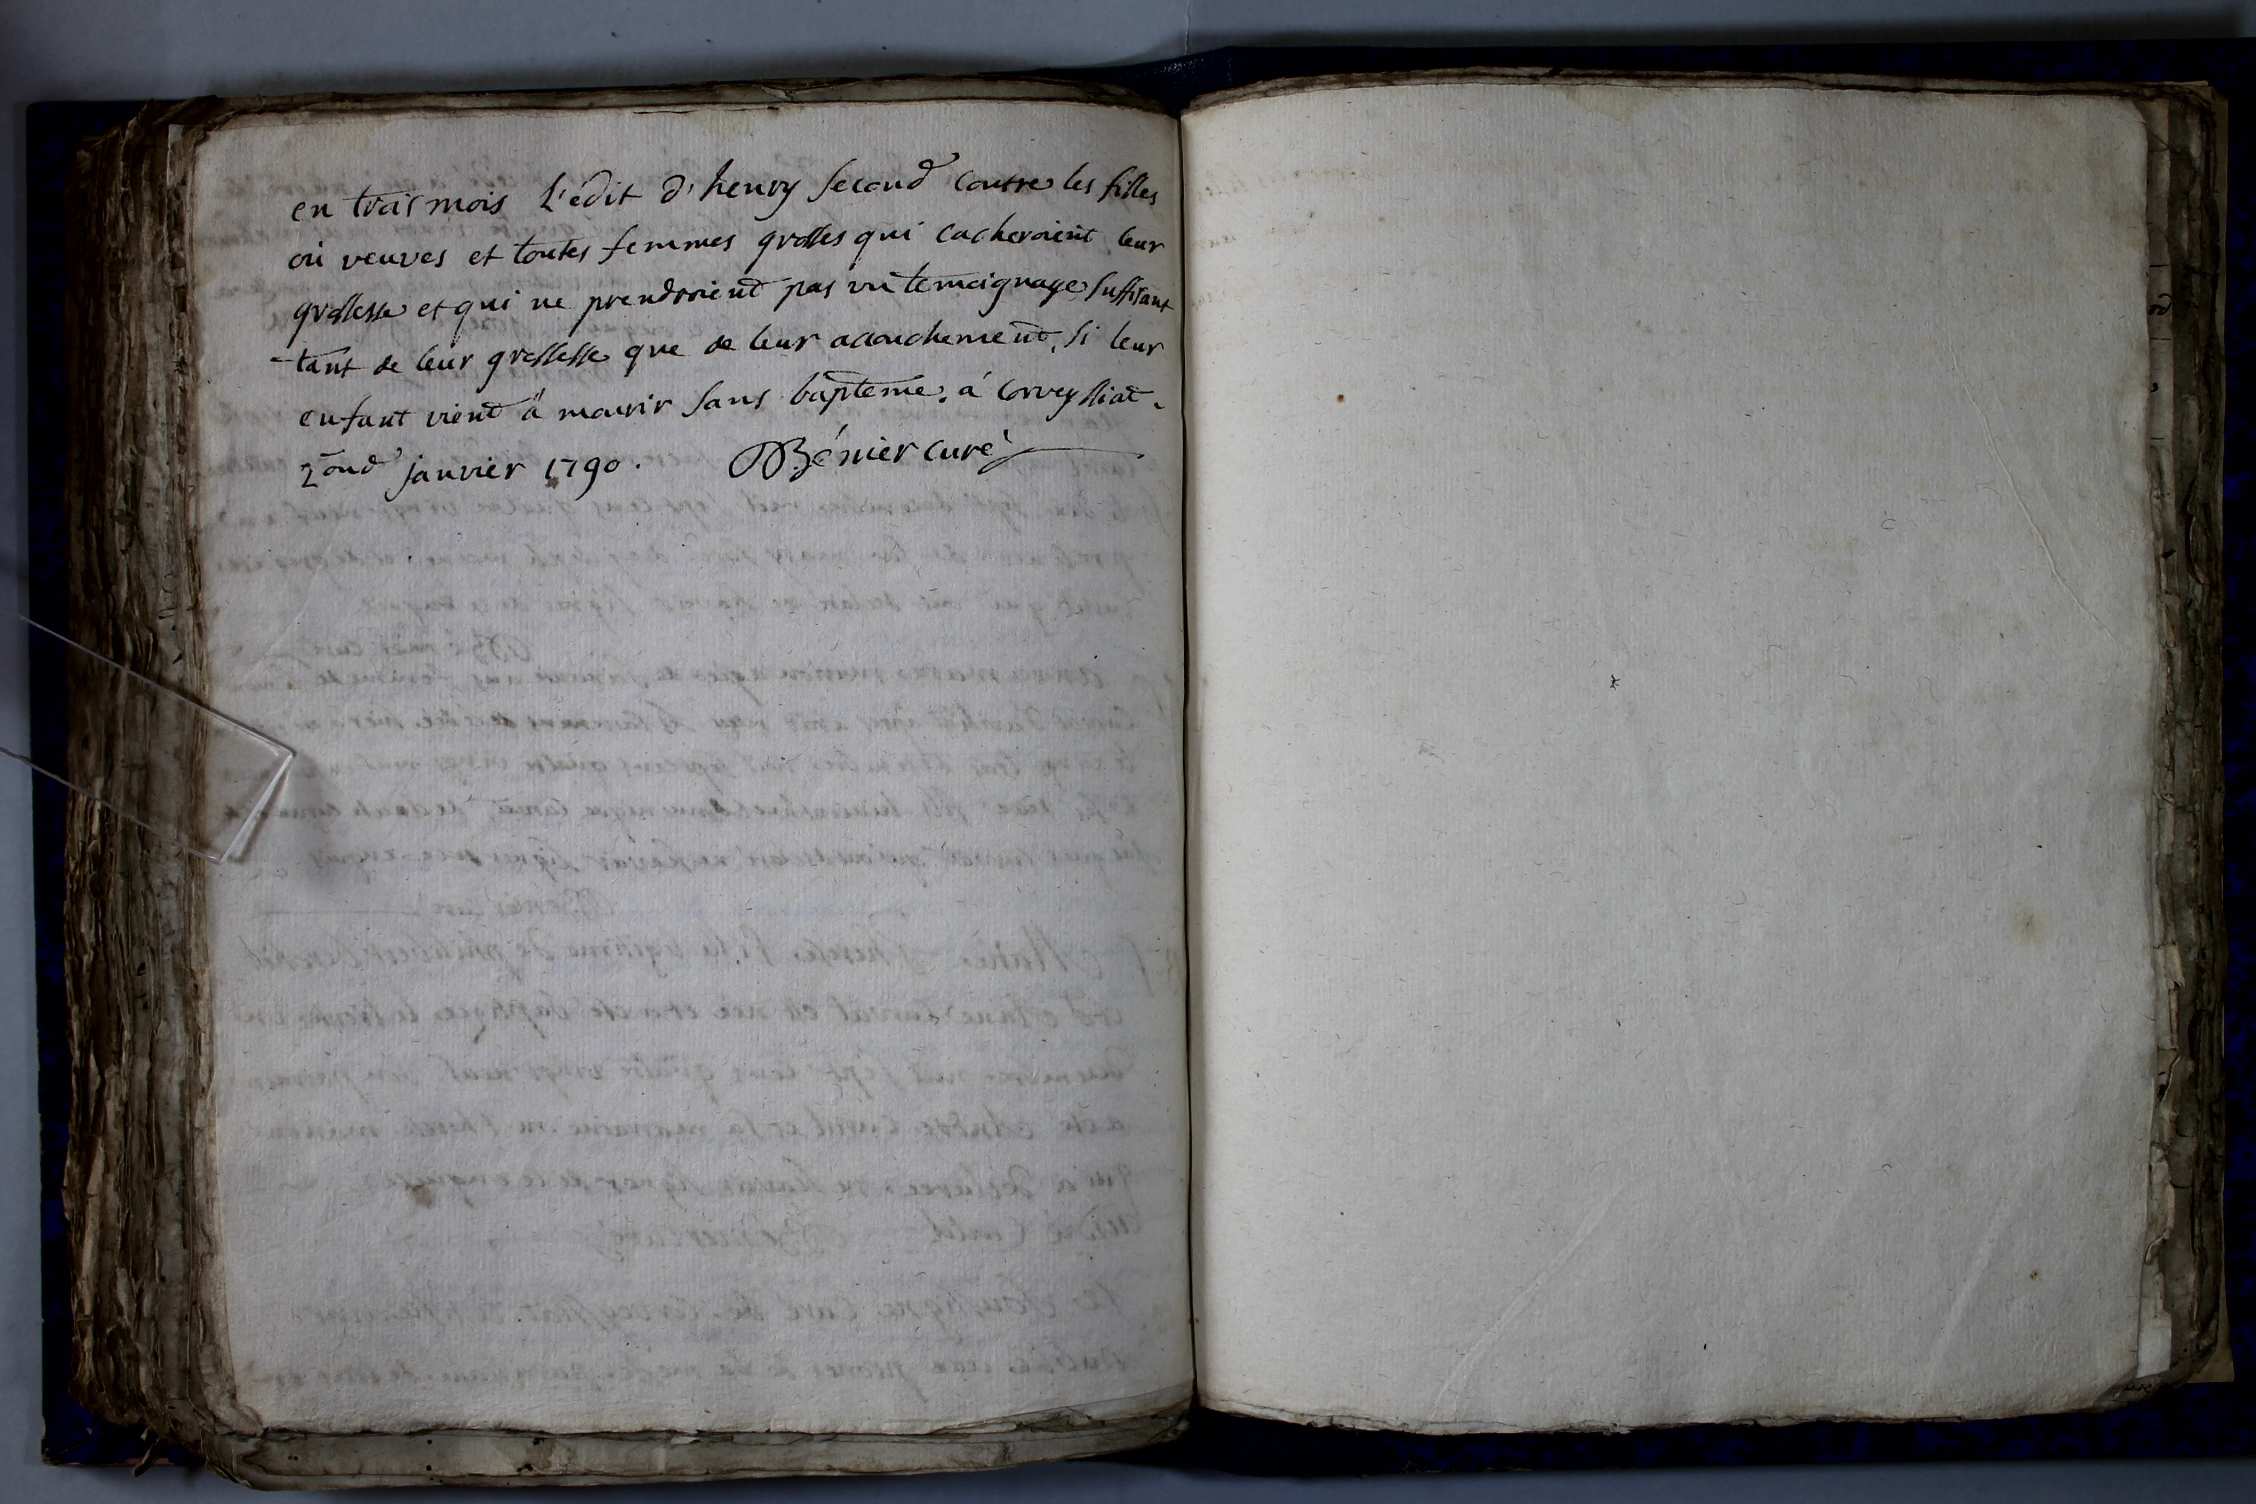 en trois mois L'edit d'henry second contre les filles
ou veuves et toutes femmes grosses qui cacheroient leur
grossesse et qui ne prendroient pas un temoignage suffisant
tant de leur grossesse que de leur acouchement, si leur
enfant vient à mourir sans baptême. à Corveyssiat
2ond janvier 1790. Bénier curé